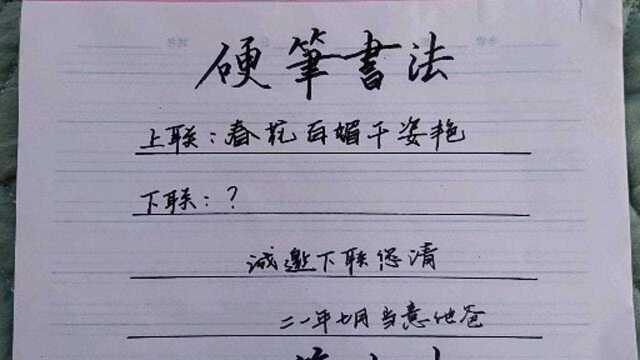 硬筆書法
上联：春花百媚千姿艳
下联：？
诚邀下联您请
二一年七月当意他爸